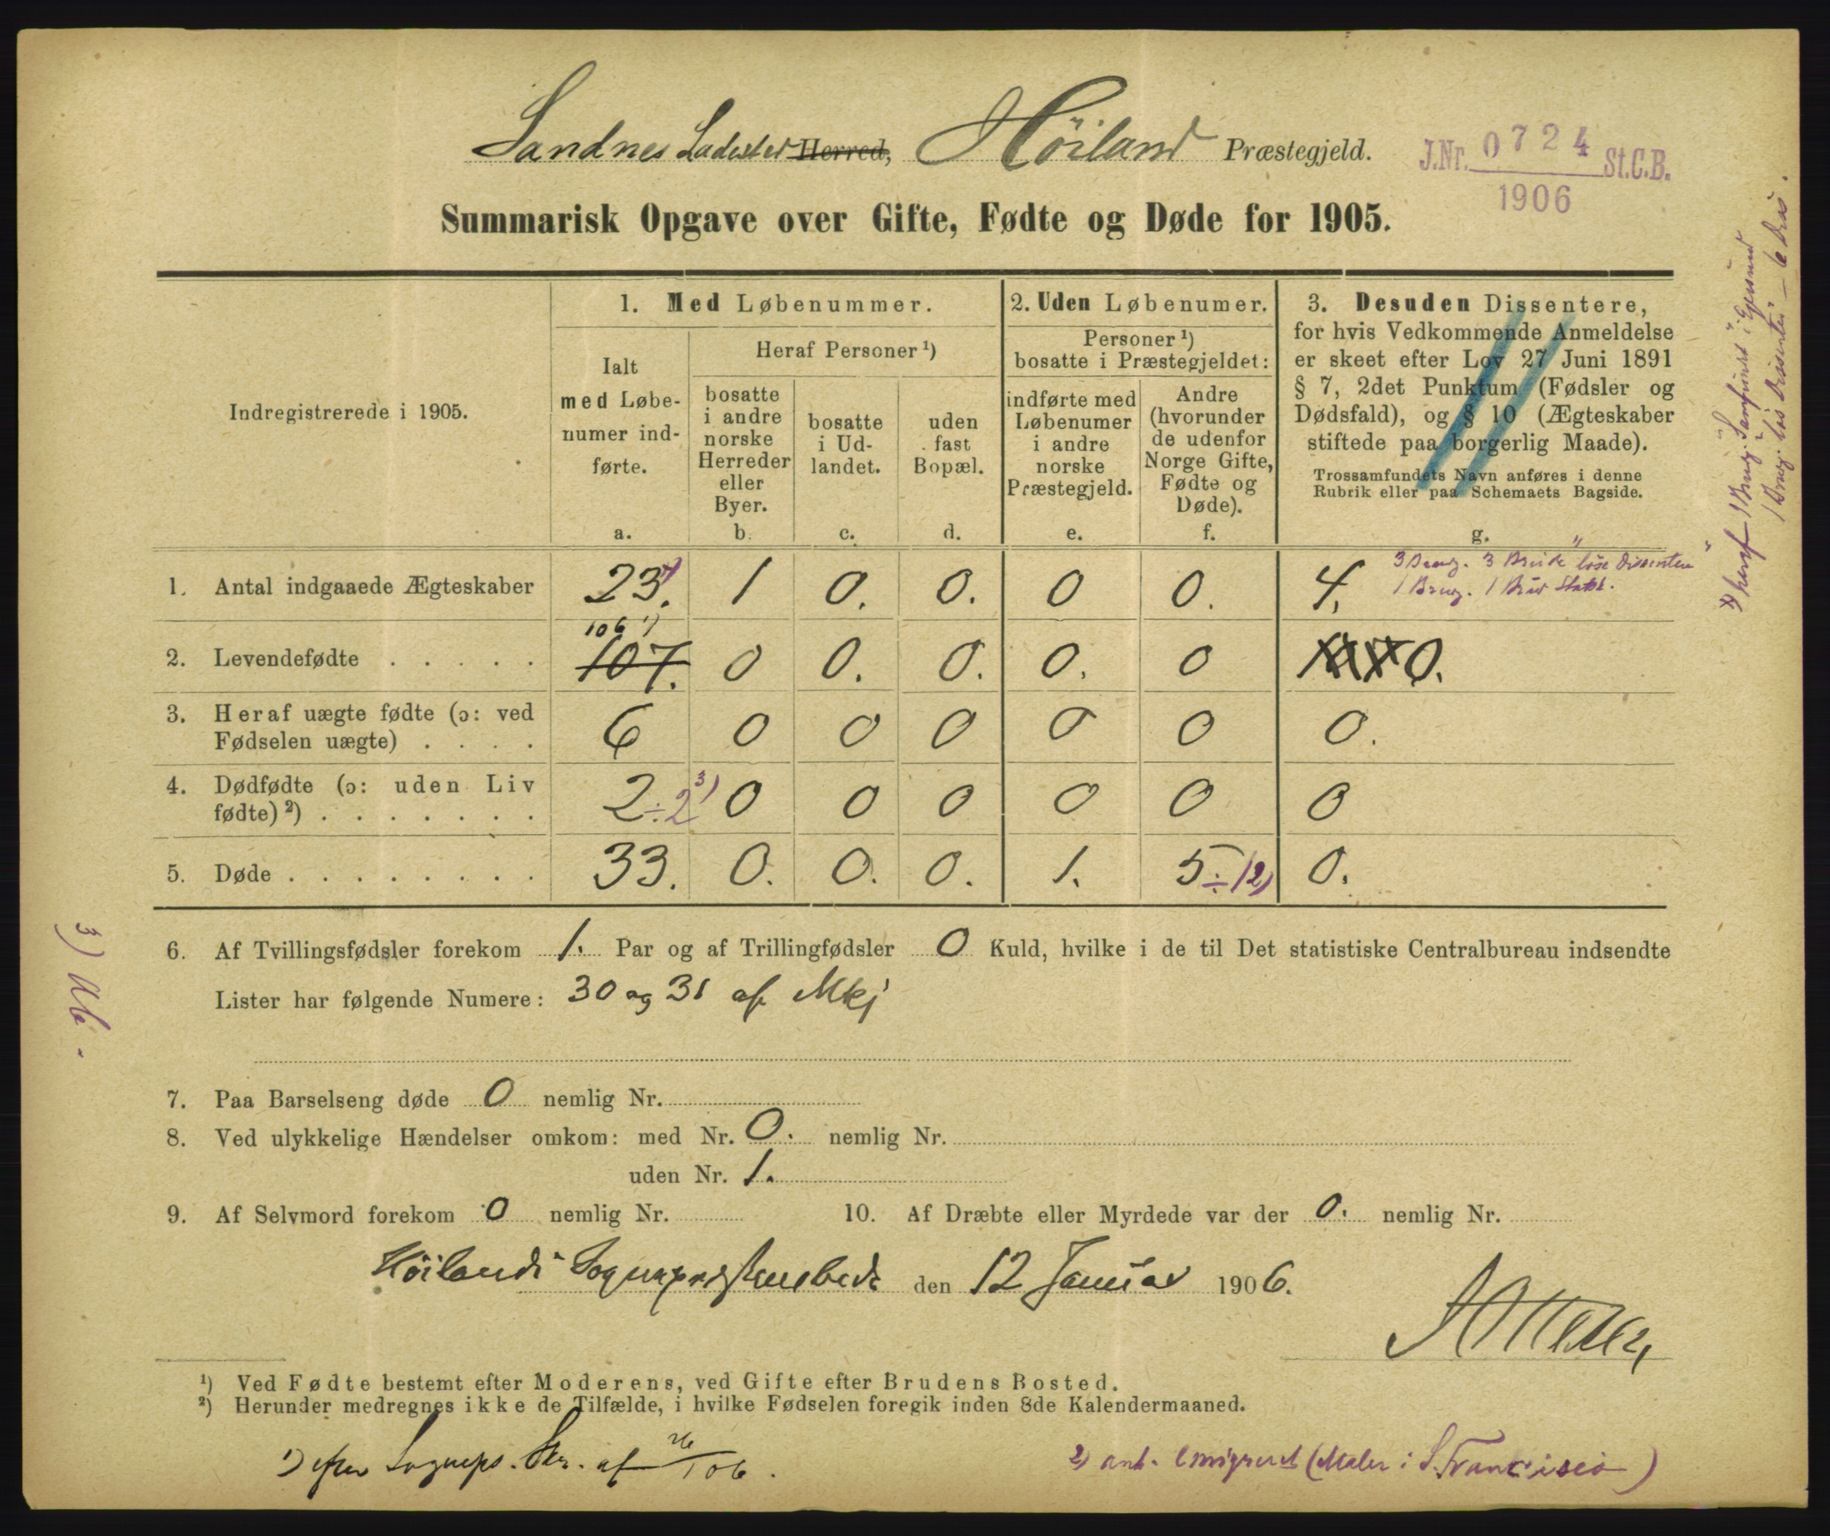 Sandnes Ladested Herred, Höiland Præstegjeld.
J.Nr. 0724 St.C.B.
1906
Summarisk Opgave over Gifte, Fødte og Døde for 1905.
Indregistrerede i 1905.
1. Med Løbenummer.
2. Uden Løbenumer.
3. Desuden Dissentere,
for hvis Vedkommende Anmeldelse
er skeet efter Lov 27 Juni 1891
§ 7, 2det Punktum (Fødsler og
Dødsfald), og § 10 (Ægteskaber
stiftede paa borgerlig Maade).
Trossamfundets Navn anføres i denne
Rubrik eller paa Schemaets Bagside.
g.
Ialt
med Løbe-
numer ind-
førte.
a.
Heraf Personer ¹)
bosatte
i andre
norske
Herreder
eller
Byer.
b.
bosatte
i Ud-
landet.
c.
uden
fast
Bopæl.
d.
Personer ¹)
bosatte i Præstegjeldet:
indførte med
Løbenumer
i andre
norske
Præstegjeld.
e.
Andre
(hvorunder
de udenfor
Norge Gifte,
Fødte og
Døde).
f.
1. Antal indgaaede Ægteskaber 23. 1 0. 0. 0 0. 4. 3 Brudg. 3 Brude "løse Dissentere"
1 Brudg. 1 Brud Statsk.
106 ¹)
2. Levendefødte . . . . . 107. 0 0. 0. 0. 0 0.
3. Heraf uægte fødte (ɔ: ved
Fødselen uægte) . . . . 6 0 0 0 0 0 0.
4. Dødfødte (ɔ: uden Liv
fødte) ²) . . . . . . . 2 ÷ 2 ³) 0 0 0 0 0 0
5. Døde . . . . . . . . 33. 0. 0. 0. 1. 5 ÷ 1 2) 0.
6. Af Tvillingsfødsler forekom 1. Par og af Trillingfødsler 0 Kuld, hvilke i de til Det statistiske Centralbureau indsendte
Lister har følgende Numere: 30 og 31 af Mkj
7. Paa Barselseng døde 0 nemlig Nr.
8. Ved ulykkelige Hændelser omkom: med Nr. 0. nemlig Nr.
uden Nr. 1.
9. Af Selvmord forekom 0 nemlig Nr.
10. Af Dræbte eller Myrdede var der 0. nemlig Nr.
Höilands Sogneprestembede den 12 Januar 1906.
¹) Ved Fødte bestemt efter Moderens, ved Gifte efter Brudens Bosted.
²) Herunder medregnes ikke de Tilfælde, i hvilke Fødselen foregik inden 8de Kalendermaaned.
1) efter Sogneps. Skr. af 26/1 06.
2) ant. emigreret (Maler i S. Francisco)
3) Ab.